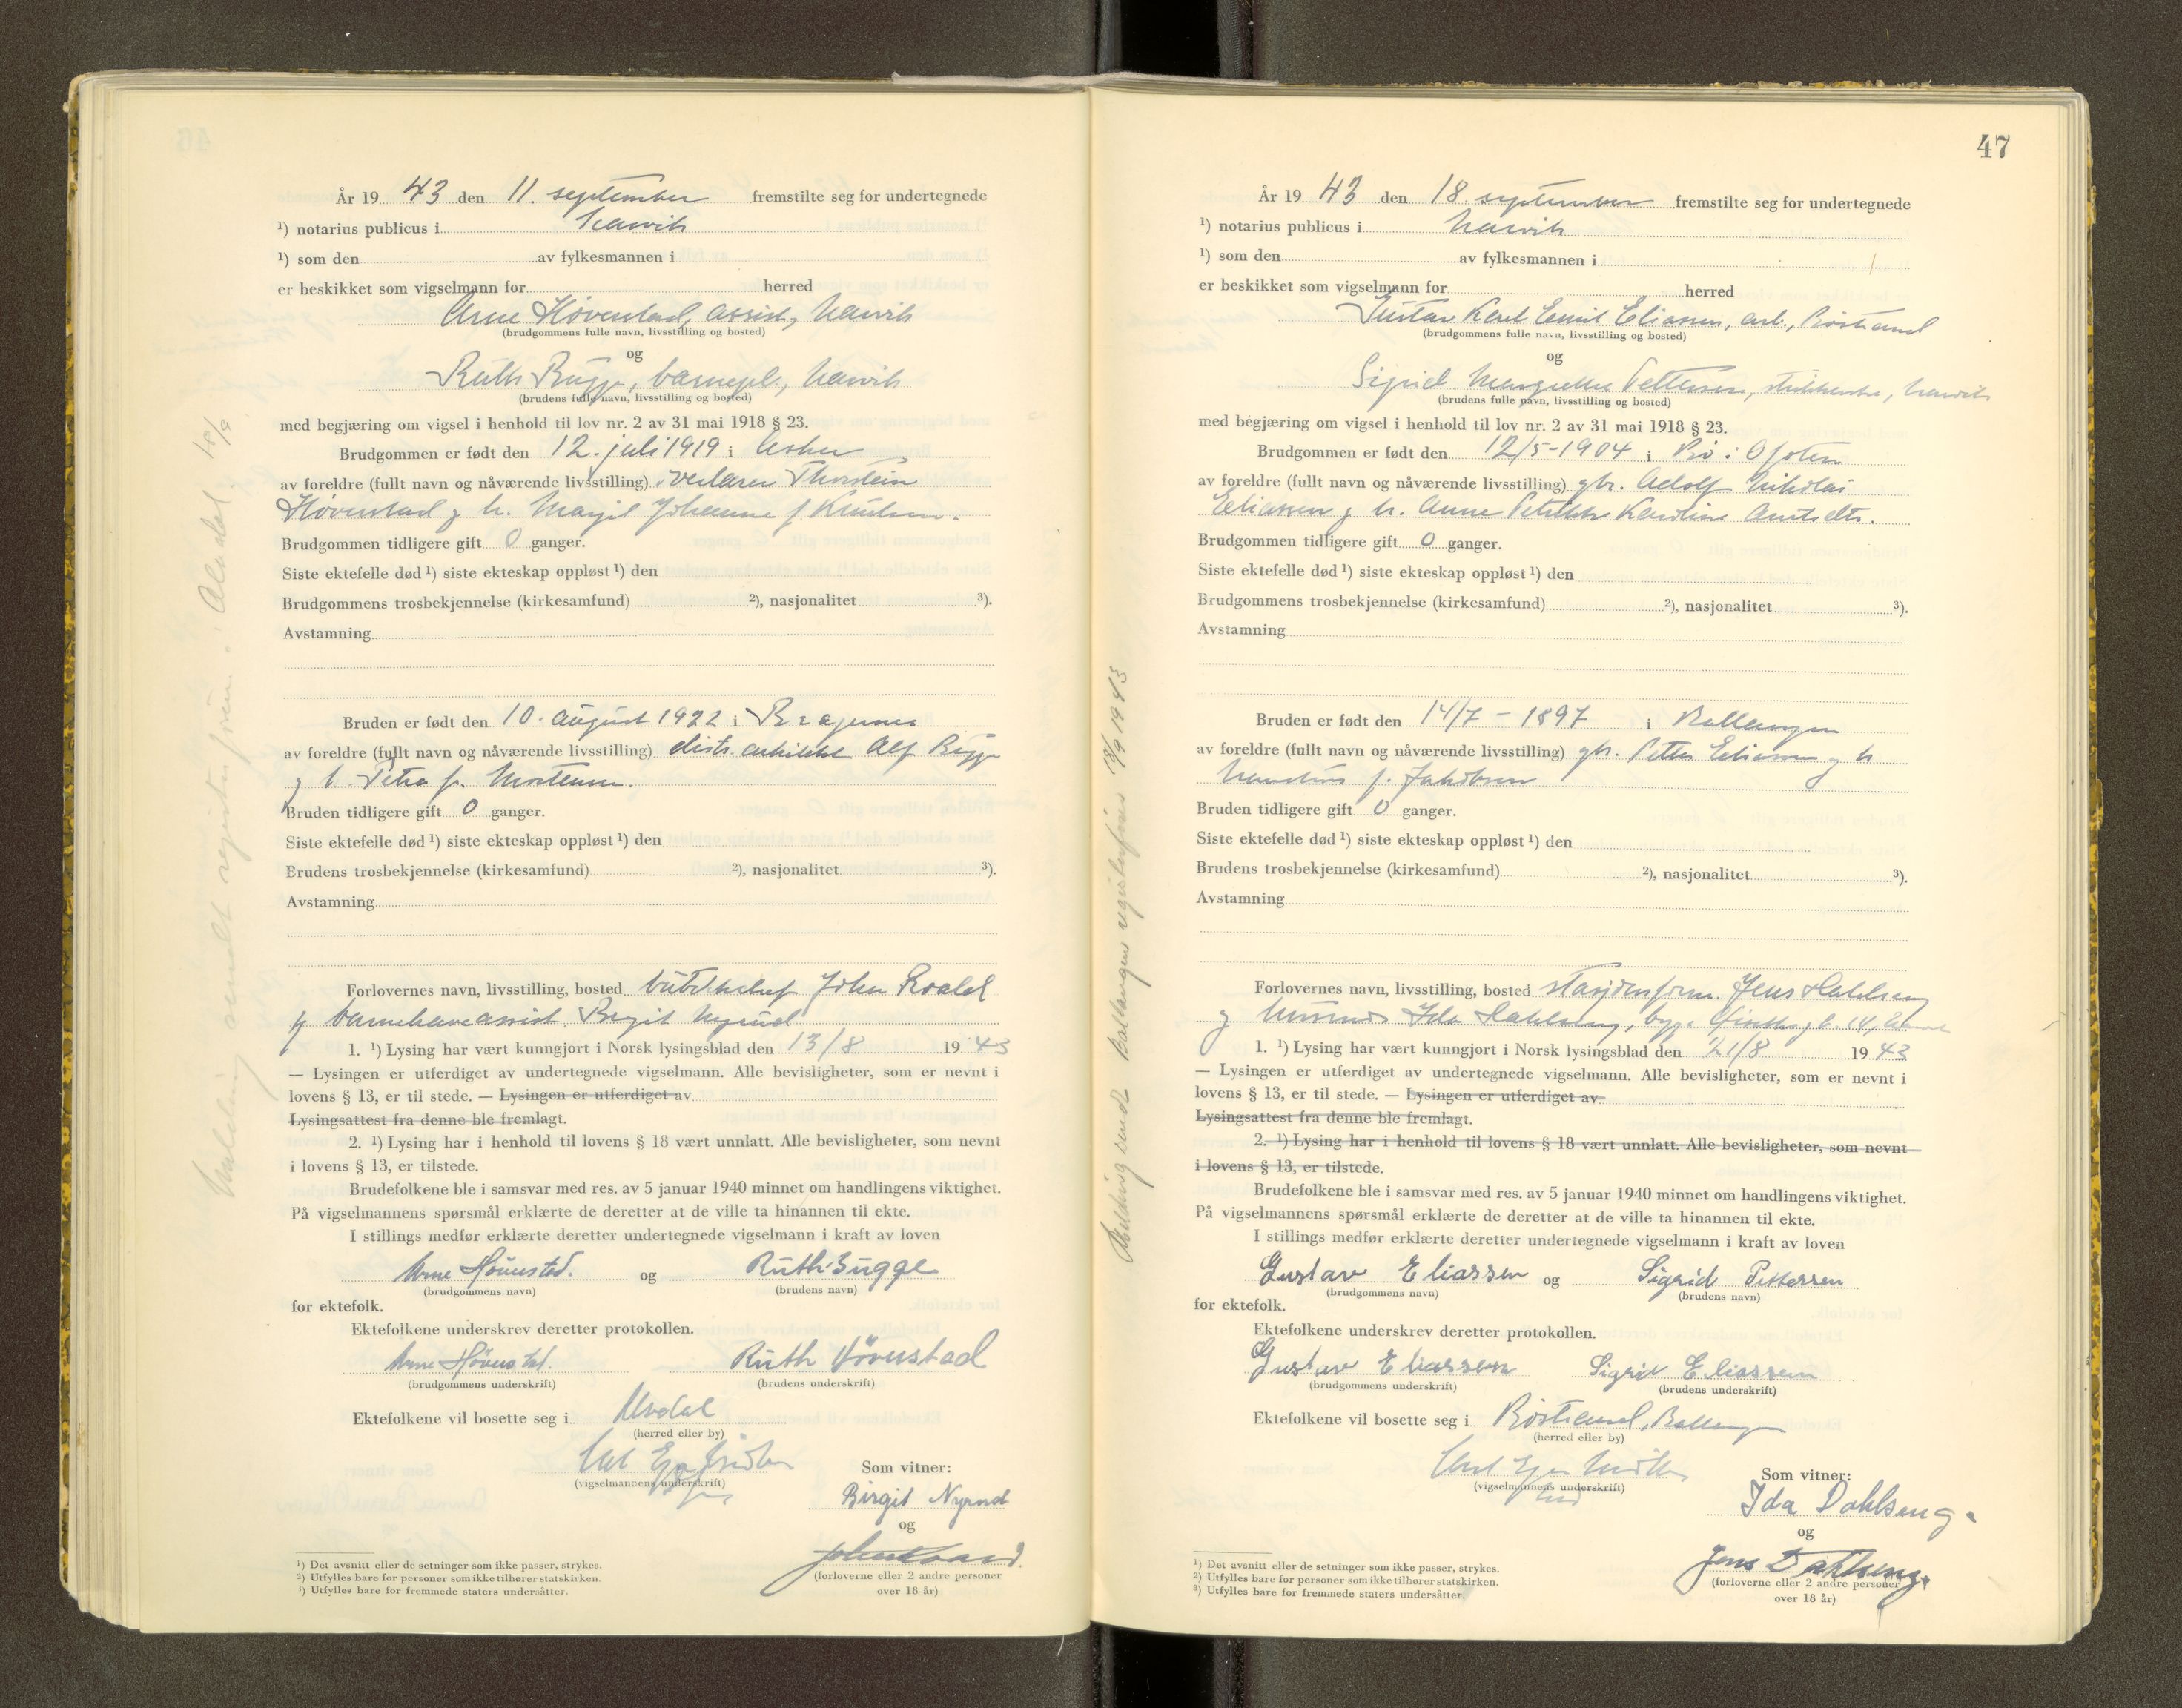 År 19 43 den 11. september fremstilte seg for undertegnede
¹) notarius publicus i Narvik
¹) som den av fylkesmannen i
er beskikket som vigselmann for herred
Arne Hövenstad, assist, Narvik
(brudgommens fulle navn, livsstilling og bosted)
og
Ruth Bugge, barnepl., Narvik
(brudens fulle navn, livsstilling og bosted)
med begjæring om vigsel i henhold til lov nr. 2 av 31 mai 1918 § 23.
Brudgommen er født den 12. juli 1919 i Asker
av foreldre (fullt navn og nåværende livsstilling) Thorstein
Hövenstad og h. Margit Johanne f. Knudsen.
Brudgommen tidligere gift 0 ganger.
Siste ektefelle død ¹) siste ekteskap oppløst ¹) den
Brudgommens trosbekjennelse (kirkesamfund) ²), nasjonalitet ³).
Avstamning
Bruden er født den 10. august 1922 i Bragernes
av foreldre (fullt navn og nåværende livsstilling) distr. arkitekt Alf Bugge
og h. Petra f. Mortensen.
Bruden tidligere gift 0 ganger.
Siste ektefelle død ¹) siste ekteskap oppløst ¹) den
Brudens trosbekjennelse (kirkesamfund) ²), nasjonalitet ³).
Avstamning
Forlovernes navn, livsstilling, bosted John Roald
og barnehaveassist. Birgit Nyrud
1. ¹) Lysing har vært kunngjort i Norsk lysingsblad den 13/8 19 43
— Lysingen er utferdiget av undertegnede vigselmann. Alle bevisligheter, som er nevnt i
lovens § 13, er til stede. — Lysingen er utferdiget av
Lysingsattest fra denne ble fremlagt.
2. ¹) Lysing har i henhold til lovens § 18 vært unnlatt. Alle bevisligheter, som nevnt
i lovens § 13, er tilstede.
Brudefolkene ble i samsvar med res. av 5 januar 1940 minnet om handlingens viktighet.
På vigselmannens spørsmål erklærte de deretter at de ville ta hinannen til ekte.
I stillings medfør erklærte deretter undertegnede vigselmann i kraft av loven
Arne Hövenstad. og Ruth Bugge
(brudgommens navn) (brudens navn)
for ektefolk.
Ektefolkene underskrev deretter protokollen.
Arne Hövenstad. Ruth Hövenstad
(brudgommens underskrift) (brudens underskrift)
Ektefolkene vil bosette seg i Alvdal
(herred eller by)
(vigselmannens underskrift)
Som vitner:
Birgit Nyrud
og
John Roald.
(forloverne eller 2 andre personer
over 18 år)
¹) Det avsnitt eller de setninger som ikke passer, strykes.
²) Utfylles bare for personer som ikke tilhører statskirken.
³) Utfylles bare for fremmede staters undersåtter.
Melding sendt registerføreren i Alvdal. 18/9
47
År 19 43 den 18. september fremstilte seg for undertegnede
¹) notarius publicus i Narvik
¹) som den av fylkesmannen i
er beskikket som vigselmann for herred
Gustav Karl Emil Eliassen, arb., Röstland
(brudgommens fulle navn, livsstilling og bosted)
og
Sigrid Margrethe Pettersen, Narvik
(brudens fulle navn, livsstilling og bosted)
med begjæring om vigsel i henhold til lov nr. 2 av 31 mai 1918 § 23.
Brudgommen er født den 12/5-1904 i Bö i Ofoten
av foreldre (fullt navn og nåværende livsstilling) gbr. Adolf Nikolai
Eliassen og h. Anna Karoline
Brudgommen tidligere gift 0 ganger.
Siste ektefelle død ¹) siste ekteskap oppløst ¹) den
Brudgommens trosbekjennelse (kirkesamfund) ²), nasjonalitet ³).
Avstamning
Bruden er født den 14/7 - 1897 i Ballangen
av foreldre (fullt navn og nåværende livsstilling) gbr. Petter Eliassen og h
f. Jakobsen
Bruden tidligere gift 0 ganger.
Siste ektefelle død ¹) siste ekteskap oppløst ¹) den
Brudens trosbekjennelse (kirkesamfund) ²), nasjonalitet ³).
Avstamning
Forlovernes navn, livsstilling, bosted stasjonsform. Jens Dahlseng
og hustru Ida Dahlseng,
1. ¹) Lysing har vært kunngjort i Norsk lysingsblad den 21/8 19 43
— Lysingen er utferdiget av undertegnede vigselmann. Alle bevisligheter, som er nevnt i
lovens § 13, er til stede. — Lysingen er utferdiget av
Lysingsattest fra denne ble fremlagt.
2. ¹) Lysing har i henhold til lovens § 18 vært unnlatt. Alle bevisligheter, som nevnt
i lovens § 13, er tilstede.
Brudefolkene ble i samsvar med res. av 5 januar 1940 minnet om handlingens viktighet.
På vigselmannens spørsmål erklærte de deretter at de ville ta hinannen til ekte.
I stillings medfør erklærte deretter undertegnede vigselmann i kraft av loven
Gustav Eliassen og Sigrid Pettersen
(brudgommens navn) (brudens navn)
for ektefolk.
Ektefolkene underskrev deretter protokollen.
Gustav Eliassen Sigrid Eliassen
(brudgommens underskrift) (brudens underskrift)
Ektefolkene vil bosette seg i Röstland, Ballangen
(herred eller by)
(vigselmannens underskrift)
Som vitner:
Ida Dahlseng.
og
Jens Dahlseng.
(forloverne eller 2 andre personer
over 18 år)
¹) Det avsnitt eller de setninger som ikke passer, strykes.
²) Utfylles bare for personer som ikke tilhører statskirken.
³) Utfylles bare for fremmede staters undersåtter.
Melding sendt Ballangen registerförer 18/9 1943